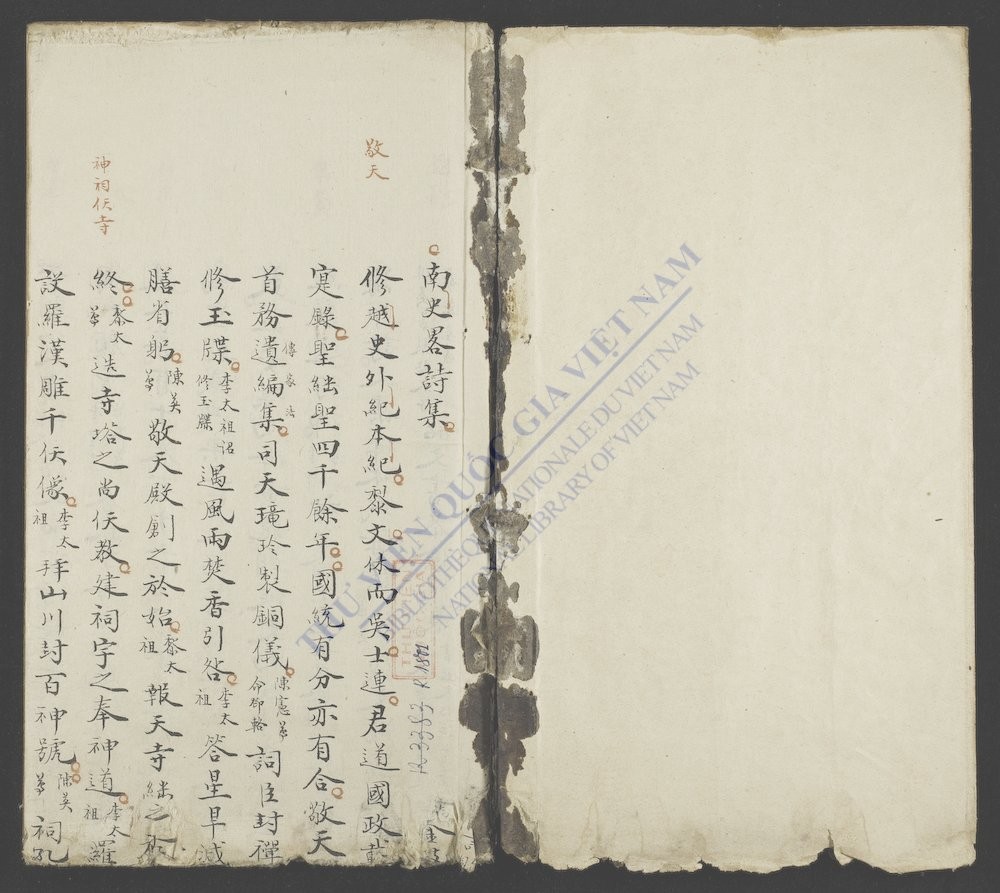 敬天
神祠仸寺
南史畧詩集
修越史外紀本紀黎文休而吳士連君道國政載
寔錄聖繼聖四千餘年國統有分亦有合敬天
首務遺編集傳家法司天璿玲製銅儀陳憲尊命鄧輅詞臣封禪
修玉牒李太祖詔修玉牒遇風雨焚香引咎李太祖答星旱減
膳省躬陳英尊敬天殿創之於始黎太祖報天寺繼之
終黎太尊造寺塔之尚仸教建祠宇之奉神道李太祖羅
設羅漢雕千仸像李太祖拜山川封百神號陳英尊祠孔
R.3383
R 1891
THƯ VIỆN QUỐC GIA VIỆT NAM
BIBLIOTHÈQUE NATIONALE DU VIETNAM
NATIONAL LIBRARY OF VIETNAM